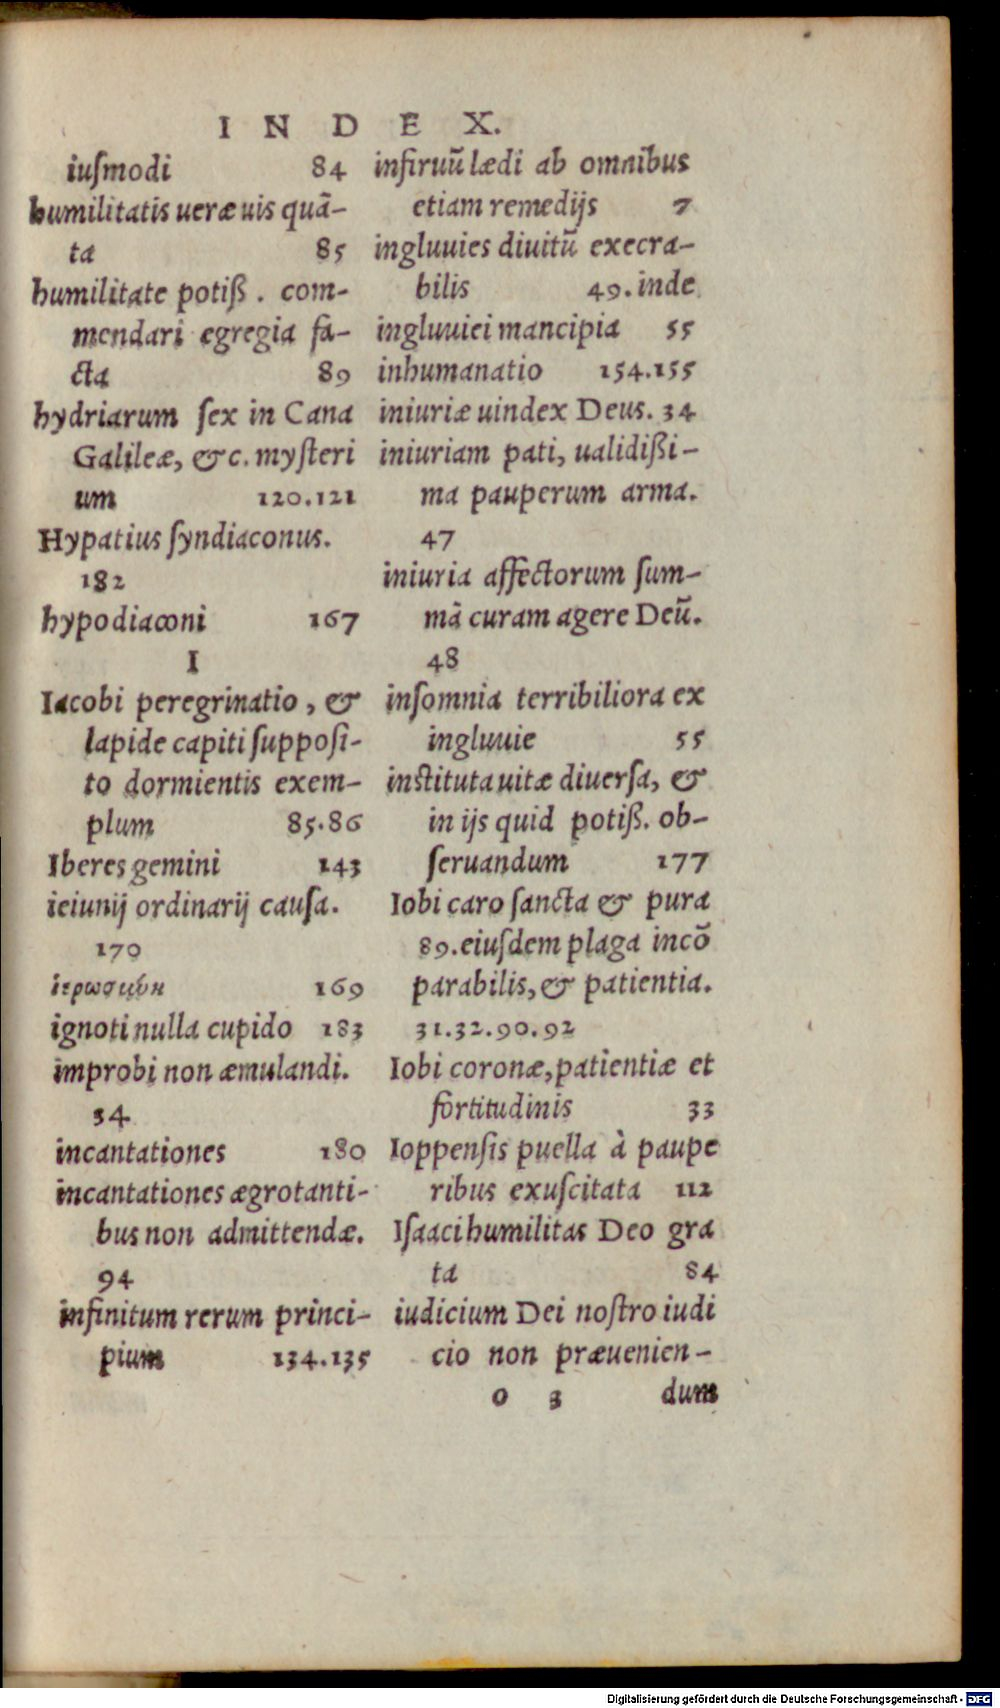 INDEX.
iuſmodi 84
humilitatis ueræ uis quã-
ta 85
humilitate potiß. com-
mendari egregia fa-
cta 89
hydriarum ſex in Cana
Galileæ, & c. myſteri
um 120.121
Hypatius ſyndiaconus.
182
hypodiaconi 167
I
Iacobi peregrinatio, &
lapide capiti ſuppoſi-
to dormientis exem-
plum 85.86
Iberes gemini 143
ieiunij ordinarij cauſa.
170
ἱερωσύνη 169
ignoti nulla cupido 183
improbi non æmulandi.
34
incantationes 180
incantationes ægrotanti-
bus non admittendæ.
94
infinitum rerum princi-
pium 134.135
infiruũ lædi ab omnibus
etiam remedijs 7
ingluuies diuitũ execra-
bilis 49.inde
ingluuiei mancipia 55
inhumanatio 154.155
iniuriæ uindex Deus. 34
iniuriam pati, ualidißi-
ma pauperum arma.
47
iniuria affectorum ſum-
mã curam agere Deũ.
48
inſomnia terribiliora ex
ingluuie 55
inſtituta uitæ diuerſa, &
in ijs quid potiß. ob-
ſeruandum 177
Iobi caro ſancta & pura
89.eiuſdem plaga incõ
parabilis, & patientia.
31.32.90.92
Iobi coronæ, patientiæ et
fortitudinis 33
Ioppenſis puella à paupe
ribus exuſcitata 112
Iſaaci humilitas Deo gra
ta 84
iudicium Dei noſtro iudi
cio non præuenien-
o 3 dum
Digitalisierung gefördert durch die Deutsche Forschungsgemeinschaft - DFG